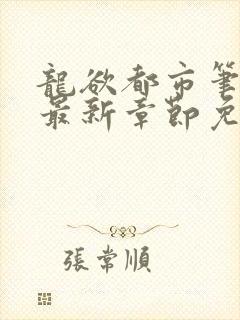 龍欲都市筆
最新章節免
張常順